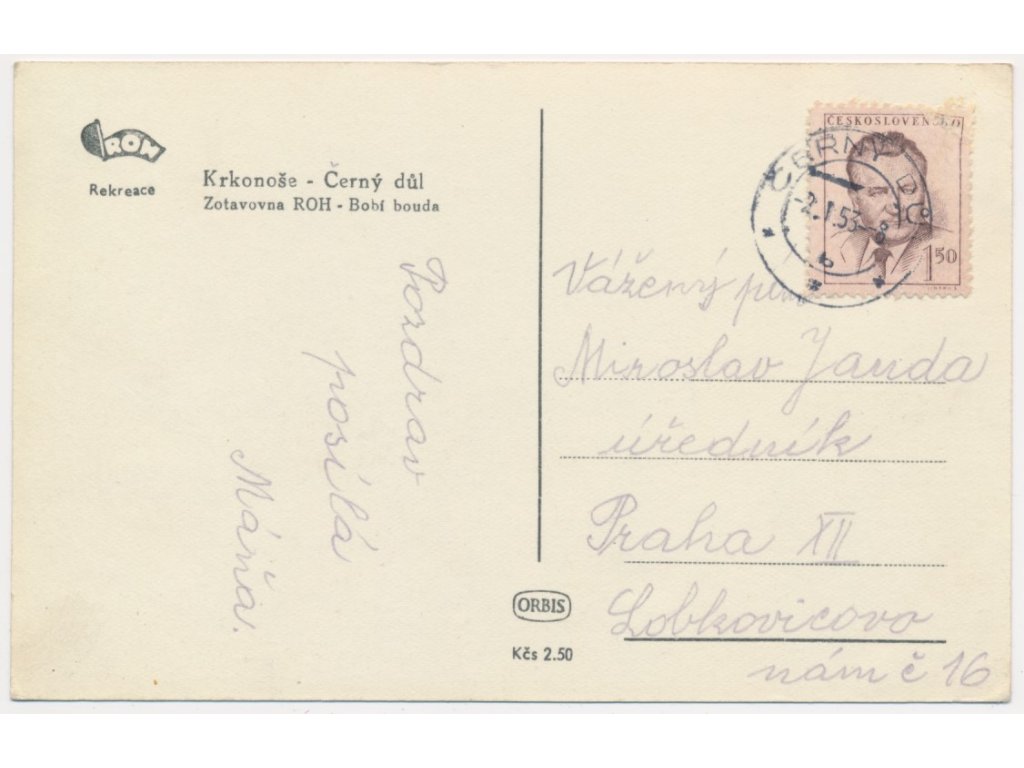 ROH
Rekreace
Krkonoše - Černý důl
Zotavovna ROH - Bobí bouda
Pozdrav
posílá
Máňa.
ČESKOSLOVENSKO
1 50
ČERNÝ DŮL
-2.1.53-8
b
Vážený pan
Miroslav Janda
úředník
Praha XII
Lobkovicovo
nám č 16
ORBIS
Kčs 2.50